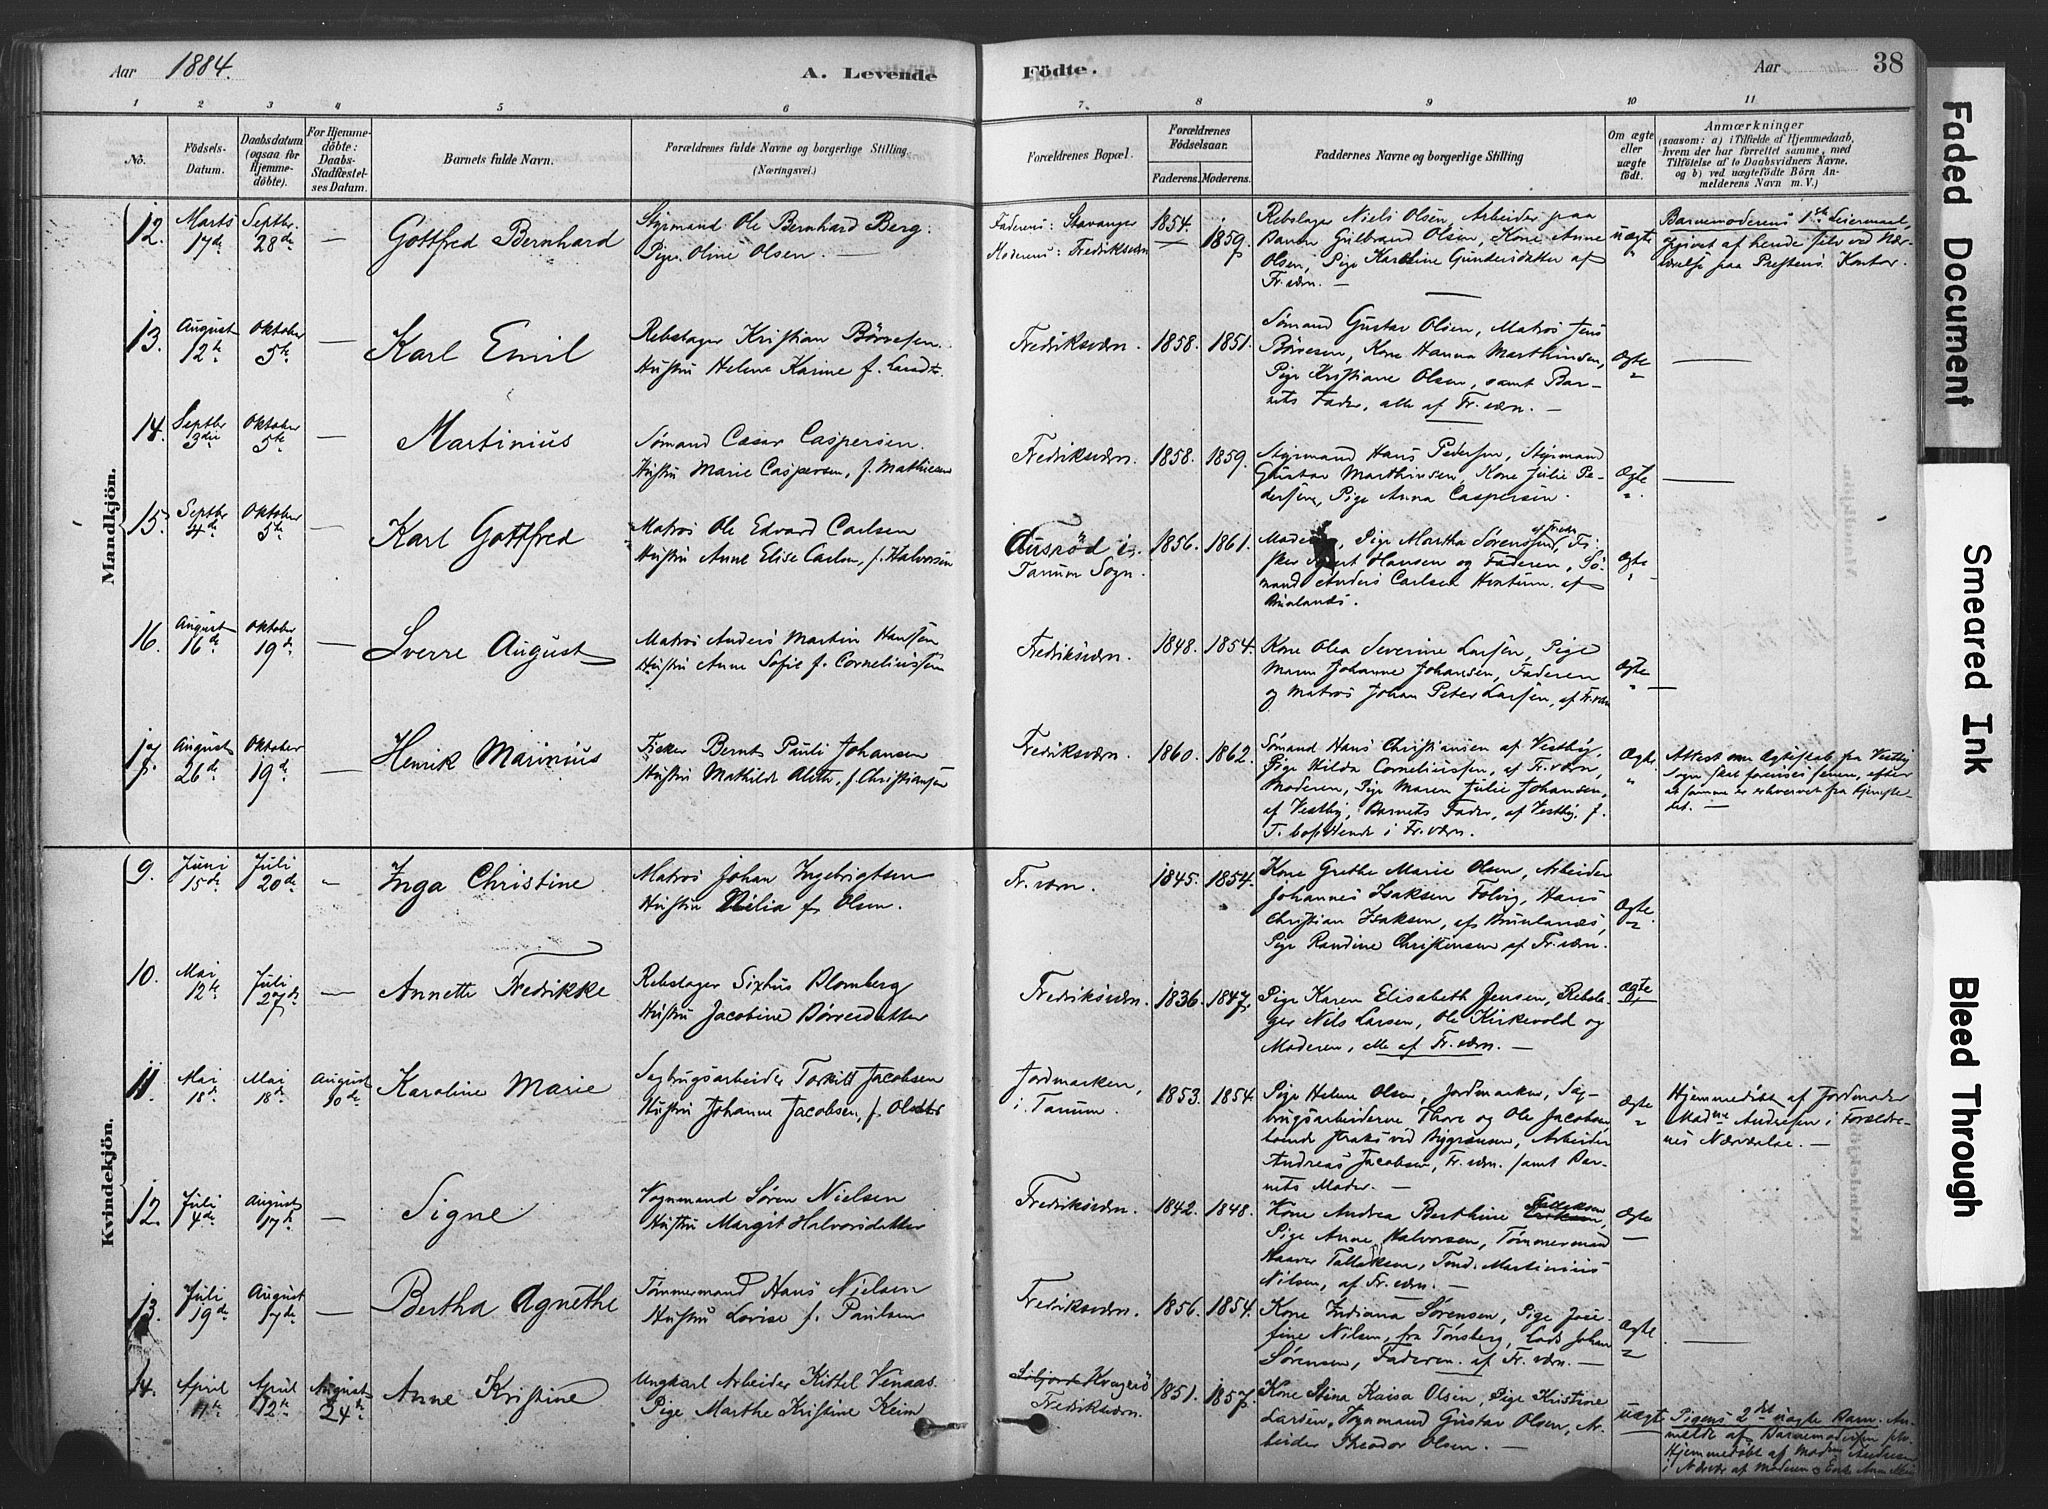 Aar 1884.
A. Levende
Födte.
Aar
38
1 2 3 4 5 6 7 8 9 10 11
No.
Födsels-
Datum.
Daabsdatum
(ogsaa for
Hjemme-
döbte).
For Hjemme-
döbte:
Daabs-
Stadfæstel-
ses Datum.
Barnets fulde Navn.
Forældrenes fulde Navne og borgerlige Stilling
(Næringsvei.)
Forældrenes Bopæl.
Forældrenes
Födselsaar.
Faderens. Moderens.
Faddernes Navne og borgerlige Stilling
Om ægte
eller
uægte
födt.
Anmærkninger
(saasom: a) i Tilfælde af Hjemmedaab,
hvem der har forrettet samme, med
Tilföielse af to Daabsvidners Navne.
og b) ved uægtefödte Börn An-
melderens Navn m. V.)
Mandkjön.
12.
Marts
17de
Septbr.
28de
—
Gottfred Bernhard
Styrmand Ole Bernhard Berg.
Pige Oline Olsen. —
Faderens: Stavanger
Moderens: Fredriksværn
1854.
1859.
Rebslager Niels Olsen, Arbeider paa
Banen Gulbrand Olsen, Kone Anne
Olsen, Pige Karoline Gundersdatter af
Fr.værn. —
uægte
Barnemoderens 1ste Leiermaal,
opgivet af hende selv ved Nær-
værelse paa Prestens Kontor.
13.
August
12te
Oktober
5te
—
Karl Emil
Rebslager Kristian Börresen.
Hustru Helene Karine f. Lund
Fredriksværn.
1858.
1851.
Sømand Gustav Olsen, Matros Jens
Börresen, Kone Hanna Marthinsen,
Pige Kristiane Olsen, samt Bar-
nets Fader, alle af Fr.værn. —
Ægte
14.
Septbr
3die
Oktober
5te
—
Martinius
Sømand Cæsar Caspersen.
Hustru Marie Caspersen, f. Mathiesen
Fredriksværn.
1858.
1859.
Styrmand Hans Pedersen, Styrmand
Gustav Marthinsen, Kone Julie Pe-
dersen, Pige Anna Caspersen.
Ægte
15.
Septbr
4de
Oktober
5te
—
Karl Gottfred
Matros Ole Edvard Carlsen
Hustru Anne Elise Carlsen, f. Halvorsen
i
Tanum Sogn.
1856.
1861.
Moderen, Pige Martha Sørensen, af Fr.værn Fi-
sker Hansen og Faderen, Sö-
mand Anders Carlsen Hentum. af
Brunlanæs.
Ægte
16.
August
16de
Oktober
19de
—
Sverre August
Matros Anders Martin Hansen
Hustru Anne Sofie f. Corneliussen
Fredriksværn.
1848.
1854.
Kone Olea Severine Larsen, Pige
Maren Johanne Johansen, Faderen
og Matros Johan Peter Larsen, af Fr.værn
Ægte
17.
August
26de
Oktober
19de
—
Henrik Marinius
Fisker Bernt Pauli Johansen
Hustru Mathilde Alette, f. Christiansen
Fredriksværn.
1860.
1862.
Sømand Hans Christiansen af Vestby,
Pige Hilda Corneliussen, af Fr.værn,
Moderen, Pige Maren Julie Johansen,
af Vestby, Barnets Fader, af Vestby, f.
T. bosiddende i Fr.værn.
Ægte
Attest om Ægteskab fra Vestby
Sogn skal forevises senere, efter
at samme er erhvervet fra Hjemste-
det. —
Kvindekjön.
9.
Juni
15de
Juli
20de
Inga Christine
Matros Johan Ingebrigtsen
Hustru Nilia f. Olsen.
Fr.værn.
1845.
1854.
Kone Grethe Marie Olsen, Arbeider
Johannes Isaksen Folvig, Hans
Christian Isaksen, af Brunlanæs,
Pige Randine Christensen af Fr.værn.
Ægte.
10.
Mai
12te
Juli
27de
—
Annette Fredrikke
Rebslager Sixtus Blomberg
Hustru Jacobine Börresdatter
Fredriksværn.
1836.
1847.
Pige Karen Elisabeth Jensen, Rebsla-
ger Nils Larsen, Ole Kirkevold og
Moderen, alle af Fr.værn. —
ægte
11.
Mai
18de
Mai
18de
August
10de
Karoline Marie
Sagbrugsarbeider Torkild Jacobsen
Hustru Johanne Jacobsen, f. Olsdtr
Jordmarken,
i Tanum.
1853.
1854.
Pige Helene Olsen, Jordmarken, Sag-
brugsarbeiderne Thore og Ole Jacobsen
boende straks ved Bygrænsen, Arbeider
Andreas Jacobsen, Fr.værn. samt Bar-
nets Moder. —
Ægte
Hjemmedöbt af Jordmoder
Madme Andresen i Forældre-
nes Nærværelse. —
12.
Juli
4de
August
17de
—
Signe
Vognmand Sören Nielsen
Hustru Margit Halvorsdatter
Fredriksværn.
1842.
1848.
Kone Andrea Berthine Tallaksen
Pige Anne Halvorsen, Tömmermand
Haaver Tallaksen, Tönd. Martinius
Nilsen, af Fr.værn. —
Ægte
13.
Juli
19de
August
17de
—
Bertha Agnethe
Tömmermand Hans Nielsen
Hustru Lovise f. Paulsen
Fredriksværn.
1856.
1854.
Kone Indiana Sørensen, Pige Jose-
fine Nilsen, fra Tönsberg, Lods Johan
Sørensen, Faderen. af Fr.værn. —
Ægte
14.
April
11te
April
12te
August
24de
Anne Kristine
Ungkarl Arbeider Kittel Venaas
Pige Marthe Kristine Keim
Kragerö
Fredriksværn.
1851.
1857.
Kone Stina Kaisa Olsen, Pige Kristine
Larsen, Vognmand Gustav Olsen, Ar-
beider Theodor Olsen. —
uægte
Pigens 2det uægte Barn. An-
meldt af Barnemoderen selv.
Hjemmedöbt af Madm Andresen
i Nærvær af Moderen og Enke
Faded Document
Smeared Ink
Bleed Through